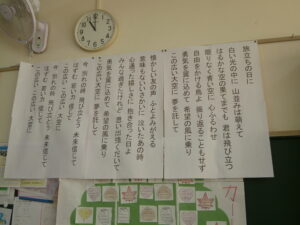 旅立ちの日に
白い光の中に 山並みは萌えて
はるかな空の果てまでも 君は飛び立つ
限りなく青い空に 心ふるわせ
自由を駆ける鳥よ 振り返ることもせず
勇気を翼に込めて 希望の風に乗り
この広い大空に 夢を託して
懐かしい友の声 ふとよみがえる
意味もないいさかいに 泣いたあの時
心通った嬉しさに 抱き合った日よ
みんな過ぎたけれど 思い出強くだいて
勇気を翼に込めて 希望の風に乗り
この広い大空に 夢を託して
今、別れの時 飛び立とう 未来信じて
はずむ 若い力 信じて
この広い この広い 大空に
今、別れの時 飛び立とう 未来信じて
はずむ 若い力 信じて
この広い この広い 大空に